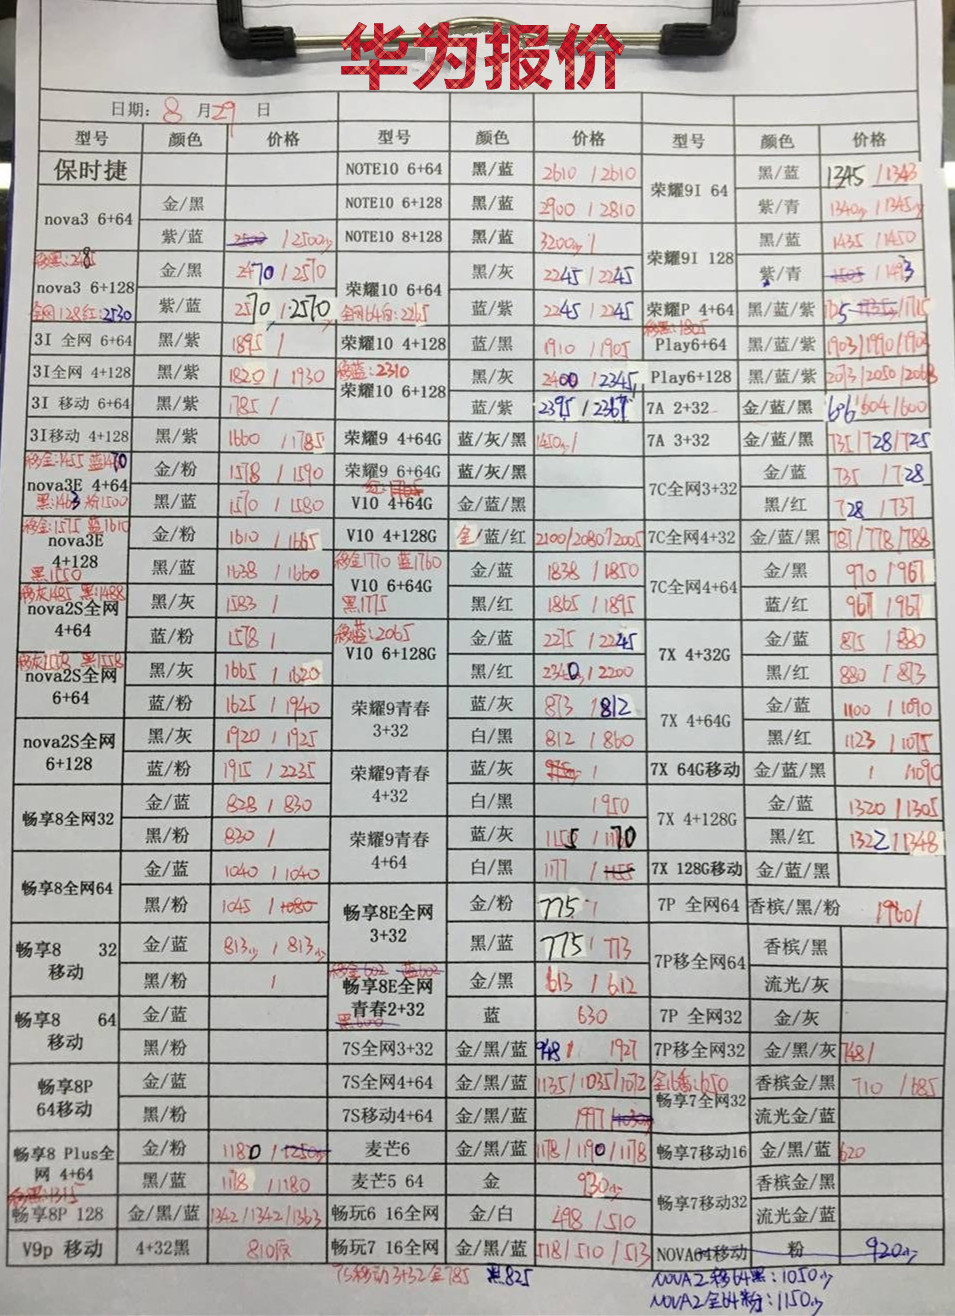 华为报价
日期: 8 月 29 日
型号 颜色 价格 型号 颜色 价格 型号 颜色 价格
保时捷 NOTE10 6+64 黑/蓝 2610 / 2610 荣耀9I 64 黑/蓝 1345 / 1343
nova3 6+64 金/黑 NOTE10 6+128 黑/蓝 2900 / 2810 紫/青 1340少 / 1345少
紫/蓝 / 2500少 NOTE10 8+128 黑/蓝 3200少 / 荣耀9I 128 黑/蓝 1435 / 1450
nova3 6+128 金/黑 2470 / 2570 荣耀10 6+64 黑/灰 2245 / 2245 紫/青 1505 / 1493
全网128红:2530 紫/蓝 2570 / 2570 全网64白:2265 蓝/紫 2245 / 2245 荣耀P 4+64 黑/蓝/紫
移黑:1805
3I 全网 6+64 黑/紫 1895 / 荣耀10 4+128 蓝/黑 1910 / 1905 Play6+64 黑/蓝/紫 1903/1990/1903
3I全网 4+128 黑/紫 1820 / 1930 移蓝:2310 荣耀10 6+128 黑/灰 2400 / 2345 Play6+128 黑/蓝/紫 2073/2050/2068
3I 移动 6+64 黑/紫 1785 / 蓝/紫 2395 / 2367 7A 2+32 金/蓝/黑 606/604/600
3I移动 4+128 黑/紫 1660 / 1785 荣耀9 4+64G 蓝/灰/黑 1450少/ 7A 3+32 金/蓝/黑 735/728/725
移金:1455 蓝1470
nova3E 4+64 金/粉 1578 / 1590 荣耀9 6+64G 蓝/灰/黑 7C全网3+32 金/蓝 735 / 728
黑:1463 粉1500 黑/蓝 1570 / 1580 V10 4+64G 金/蓝/黑 红/黑 728 / 737
移金:1575 蓝1610
nova3E 4+128 金/粉 1610 / 1665 V10 4+128G 金/蓝/红 2100/2080/2005 7C全网4+32 金/蓝/黑 787/778/788
黑1550 黑/蓝 1638 / 1660 移金1770 蓝1760 V10 6+64G 金/蓝 1838 / 1850 7C全网4+64 金/黑 970 / 967
移灰1485 黑:1488
nova2S全网 4+64 黑/灰 1583 / 黑1775 黑/红 1865 / 1895 蓝/红 967 / 967
蓝/粉 1578 / 移蓝:2065 V10 6+128G 金/蓝 2275 / 2245 7X 4+32G 金/蓝 875 / 880
移灰1558 黑1558
nova2S全网 6+64 黑/灰 1665 / 1620 黑/红 2340少 / 2200 黑/红 880 / 873
蓝/粉 1625 / 1940 荣耀9青春 3+32 蓝/灰 873 / 812 7X 4+64G 金/蓝 1100 / 1090
nova2S全网 6+128 黑/灰 1920 / 1925 白/黑 812 / 860 黑/红 1123 / 1075
蓝/粉 1915 / 2235 荣耀9青春 4+32 蓝/灰 / 7X 64G移动 金/蓝/黑 / 1090
畅享8全网32 金/蓝 828 / 830 白/黑 / 950 7X 4+128G 金/蓝 1320 / 1305
黑/粉 830 / 荣耀9青春 4+64 蓝/灰 1155 / 1170 黑/红 1322 / 1348
畅享8全网64 金/蓝 1040 / 1040 白/黑 1177 / 1155 7X 128G移动 金/蓝/黑
黑/粉 1045 / 1080 畅享8E全网 3+32 金/粉 775 / 7P 全网64 香槟/黑/粉 1960/
畅享8 32 移动 金/蓝 813少 / 813少 黑/蓝 775 / 773 7P移全网64 香槟/黑
移金602 蓝602
黑/粉 / 畅享8E全网 青春2+32 金/黑 613 / 612 流光/灰
畅享8 64 移动 金/蓝 黑600 蓝 630 7P 全网32 金/灰
黑/粉 7S全网3+32 金/黑/蓝 948 / 7P移全网32 金/黑/灰 748/
畅享8P 64移动 金/蓝 7S全网4+64 金/黑/蓝 1135/1035/1072 畅享7全网32 香槟金/黑 710 / 685
黑/粉 7S移动4+64 金/黑/蓝 流光金/蓝
畅享8 Plus全网 4+64 金/粉 1180 / 1250少 麦芒6 金/黑/蓝 1178/1190/1178 畅享7移动16 金/黑/蓝 620
黑/蓝 1178 / 1180 麦芒5 64 金 930少 畅享7移动32 香槟金/黑
移黑:1315
畅享8P 128 金/黑/蓝 1342/1342/1363 畅玩6 16全网 金/白 498 / 510 流光金/蓝
V9p 移动 4+32黑 810 畅玩7 16全网 金/黑/蓝 518/510/513 NOVA64移动 粉 920少
7S移动3+32金785 黑825 NOVA2移64黑:1050少
NOVA2全64粉:1150少